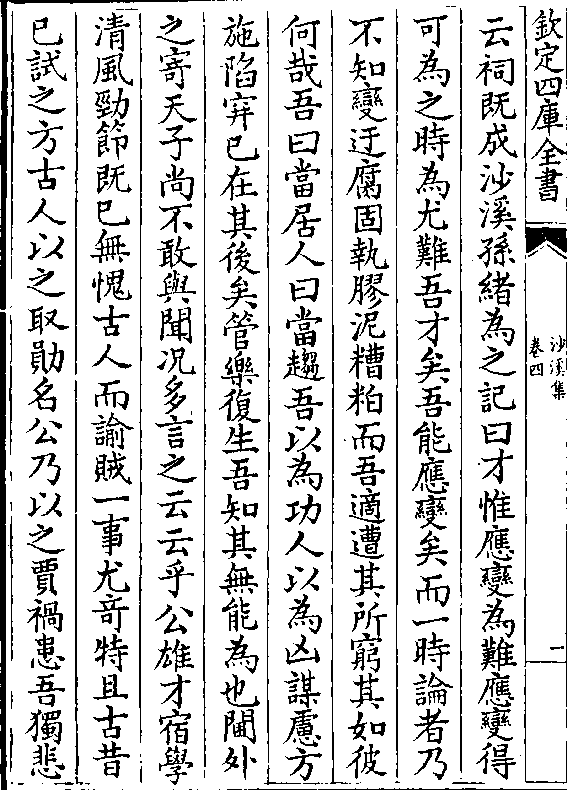 欽定四庫全書
沙溪集
卷四
一
云祠既成沙溪孫緒為之記曰才惟應變為難應變得
可為之時為尤難吾才矣吾能應變矣而一時論者乃
不知變迂腐固執膠泥糟粕而吾適遭其所窮其如彼
何哉吾曰當居人曰當趨吾以為功人以為凶謀慮方
施陷穽已在其後矣管樂復生吾知其無能為也閫外
之寄天子尚不敢與聞况多言之云云乎公雄才宿學
清風勁節既已無愧古人而諭賊一事尤竒特且古昔
已試之方古人以之取勛名公乃以之賈禍患吾獨悲